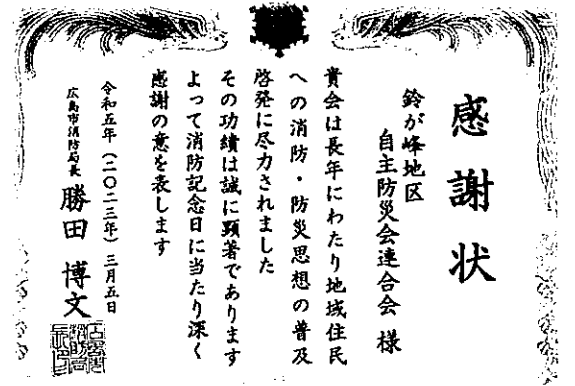 感謝状
鈴が峰地区
自主防災会連合会 様
貴会は長年にわたり地域住民
への消防・防災思想の普及
啓発に尽力されました
その功績は誠に顕著であります
よって消防記念日に当たり深く
感謝の意を表します
令和五年(二〇二三年)三月五日
広島市消防局長 勝田 博文